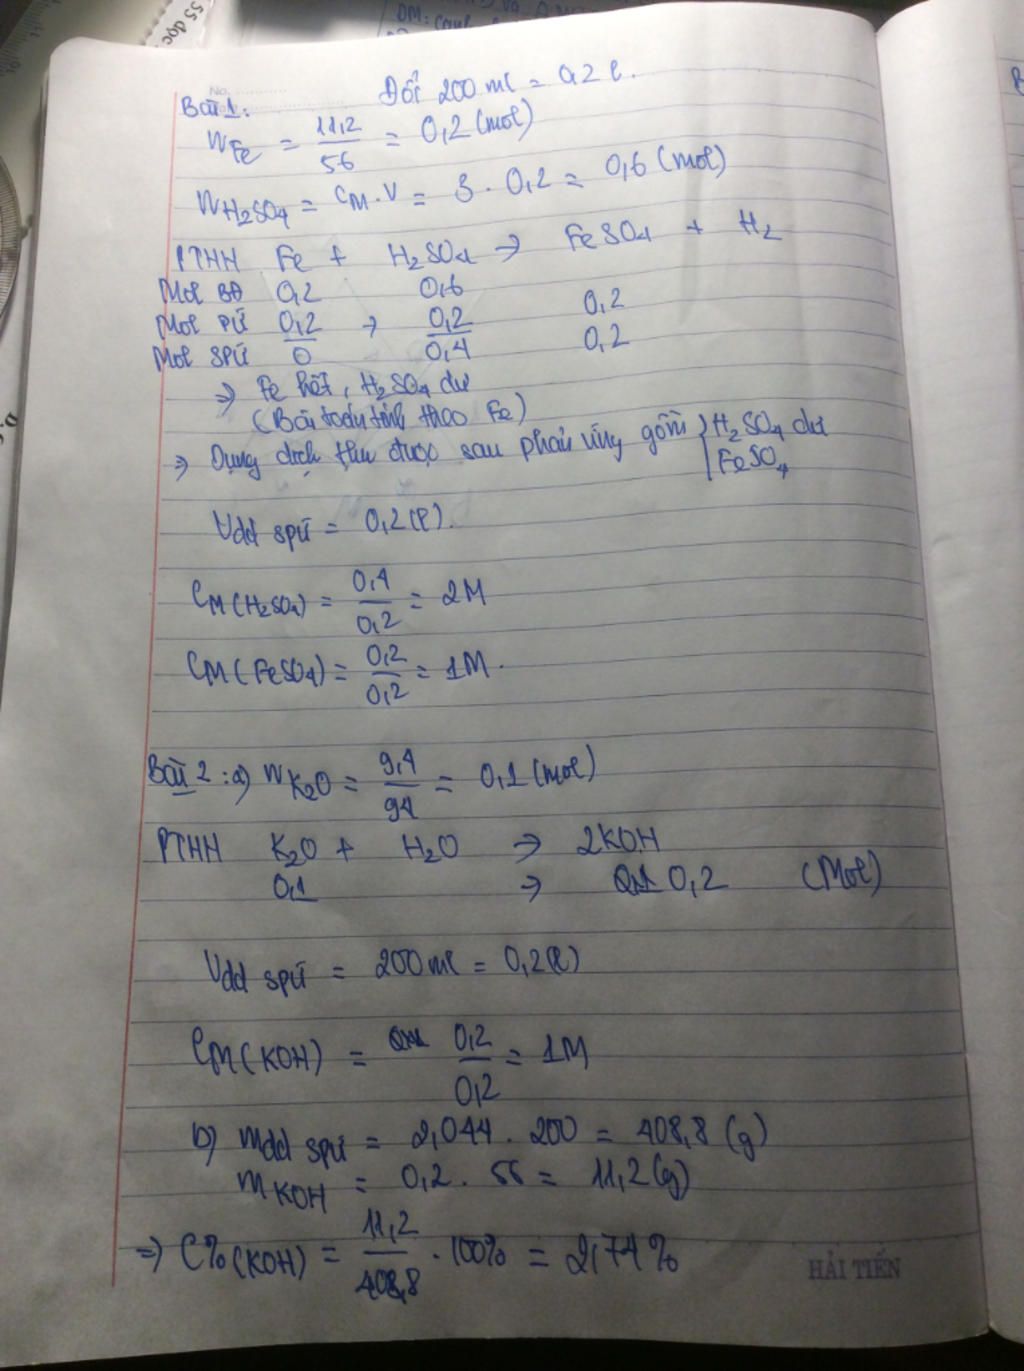 55 đọc
No.
Đổi 200 ml = 0,2 l.
Bài 1:
nFe = 11,2/56 = 0,2 (mol)
nH2SO4 = CM.V = 3 . 0,2 = 0,6 (mol)
PTHH Fe + H2SO4 → FeSO4 + H2
Mol BĐ 0,2 0,6
Mol PƯ 0,2 → 0,2 0,2
Mol SPƯ 0 0,4 0,2
⇒ Fe hết, H2SO4 dư
(Bài toán tính theo Fe)
⇒ Dung dịch thu được sau phản ứng gồm { H2SO4 dư
FeSO4
Vdd spứ = 0,2 (l).
CM(H2SO4) = 0,4/0,2 = 2M
CM(FeSO4) = 0,2/0,2 = 1M.
Bài 2: a) nK2O = 9,4/94 = 0,1 (mol)
PTHH K2O + H2O → 2KOH
0,1 → 0,2 (Mol)
Vdd spứ = 200 ml = 0,2 (l)
CM(KOH) = 0,2/0,2 = 1M
b) mdd spứ = 2,044 . 200 = 408,8 (g)
mKOH = 0,2 . 56 = 11,2 (g)
⇒ C%(KOH) = 11,2/408,8 . 100% = 2,74%
HẢI TIẾN